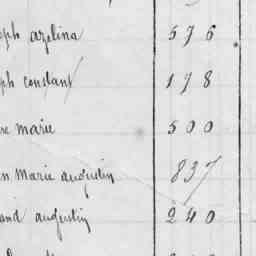 azelina 576
constant 178
marie 500
n Marie augustin 837
and augustin 240